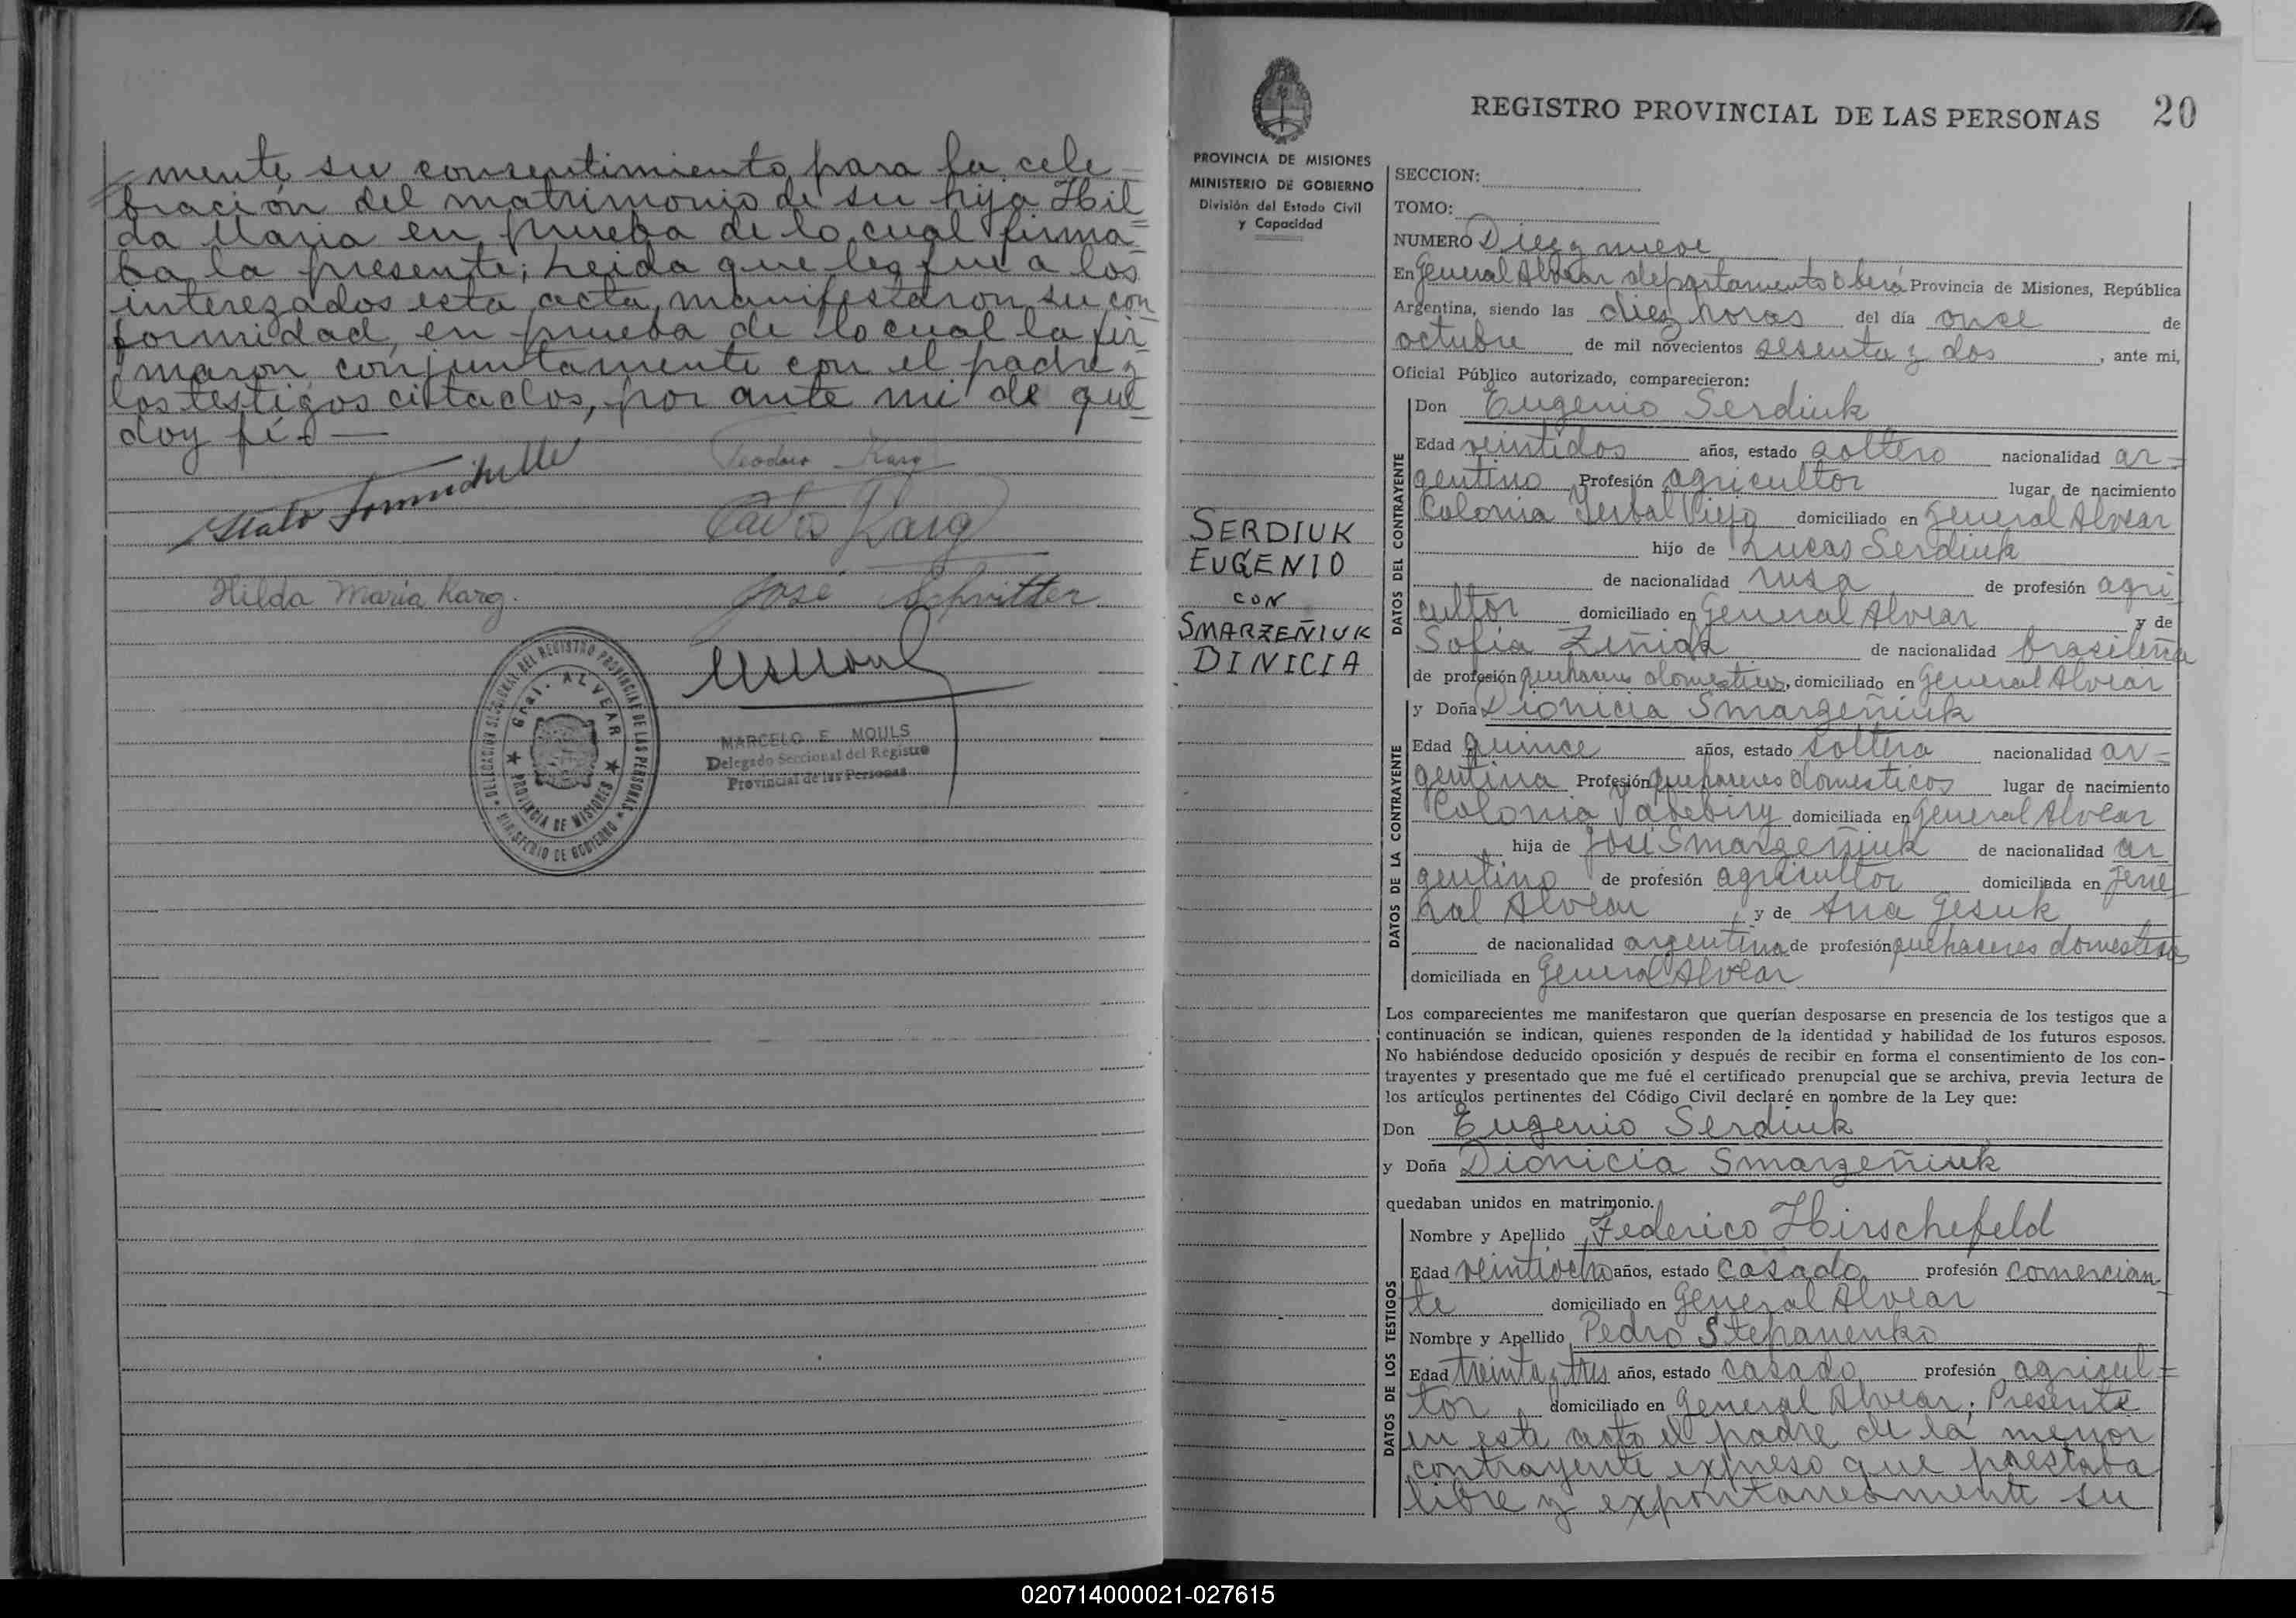 mente su consentimiento para la cele-
bración del matrimonio de su hija Hil-
da Maria en prueba de lo cual firma-
ba la presente; Leida que les fue a los
interezados esta acta, manifestaron su con
formidad, en prueba de lo cual la fir-
maron conjuntamente con el padre y
los testigos citados, por ante mi de que
doy fé.-
Teodoro Karg
Carlos Karg
Hilda Maria Karg.
José Schvitter
DELEGACION SECCIONAL DEL REGISTRO PROVINCIAL DE LAS PERSONAS
Gral. ALVEAR
PROVINCIA DE MISIONES
MINISTERIO DE GOBIERNO
MARCELO E. MOULS
Delegado Seccional del Registro
Provincial de las Personas
REGISTRO PROVINCIAL DE LAS PERSONAS 20
PROVINCIA DE MISIONES
MINISTERIO DE GOBIERNO
División del Estado Civil
y Capacidad
SERDIUK
EUGENIO
CON
SMARZEÑIUK
DINICIA
SECCION:
TOMO:
NUMERO Diez y nueve
En General Alvear departamento Oberá Provincia de Misiones, República
Argentina, siendo las diez horas del día once de
octubre de mil novecientos sesenta y dos, ante mi,
Oficial Público autorizado, comparecieron:
DATOS DEL CONTRAYENTE
Don Eugenio Serdiuk
Edad veintidos años, estado soltero nacionalidad ar-
gentino Profesión agricultor lugar de nacimiento
Colonia Yerbal Viejo domiciliado en General Alvear
hijo de Lucas Serdiuk
de nacionalidad rusa de profesión agri
cultor domiciliado en General Alvear y de
Sofia Zeñiak de nacionalidad brasileña
de profesión quehaceres domesticos, domiciliado en General Alvear
DATOS DE LA CONTRAYENTE
y Doña Dionicia Smarzeñiuk
Edad quince años, estado soltera nacionalidad ar-
gentina Profesión quehaceres domesticos lugar de nacimiento
Colonia Yabebiry domiciliada en General Alvear
hija de José Smarzeñiuk de nacionalidad ar
gentino de profesión agricultor domiciliada en Gene-
ral Alvear, y de Ana Gesuk
de nacionalidad argentina de profesión quehaceres domesticos
domiciliada en General Alvear
Los comparecientes me manifestaron que querían desposarse en presencia de los testigos que a
continuación se indican, quienes responden de la identidad y habilidad de los futuros esposos.
No habiéndose deducido oposición y después de recibir en forma el consentimiento de los con-
trayentes y presentado que me fué el certificado prenupcial que se archiva, previa lectura de
los artículos pertinentes del Código Civil declaré en nombre de la Ley que:
Don Eugenio Serdiuk
y Doña Dionicia Smarzeñiuk
quedaban unidos en matrimonio.
DATOS DE LOS TESTIGOS
Nombre y Apellido Federico Hirschefeld
Edad veintiocho años, estado casado profesión comercian-
te domiciliado en General Alvear
Nombre y Apellido Pedro Stepanenko
Edad treinta y tres años, estado casado profesión agricul-
tor domiciliado en General Alvear; Presente
en este acto el padre de la menor
contrayente expreso que prestaba
libre y expontaneamente su
020714000021-027615